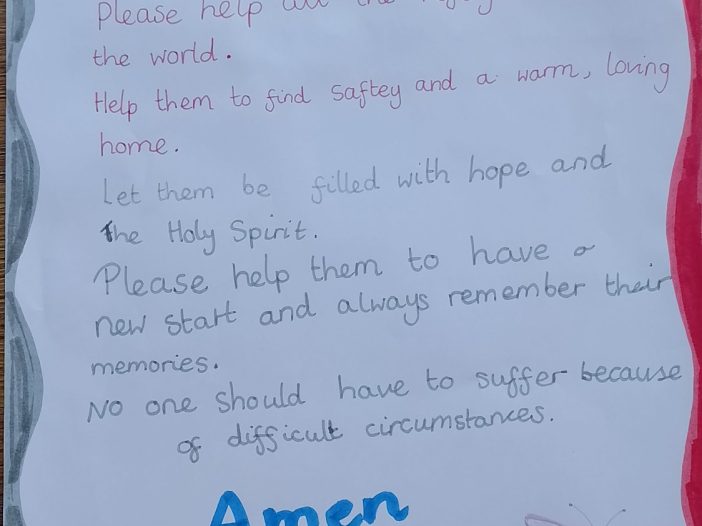 Please help all the
the world.
Help them to find saftey and a warm, loving
home.
Let them be filled with hope and
the Holy Spirit.
Please help them to have a
new start and always remember their
memories.
No one should have to suffer because
of difficult circumstances.
Amen